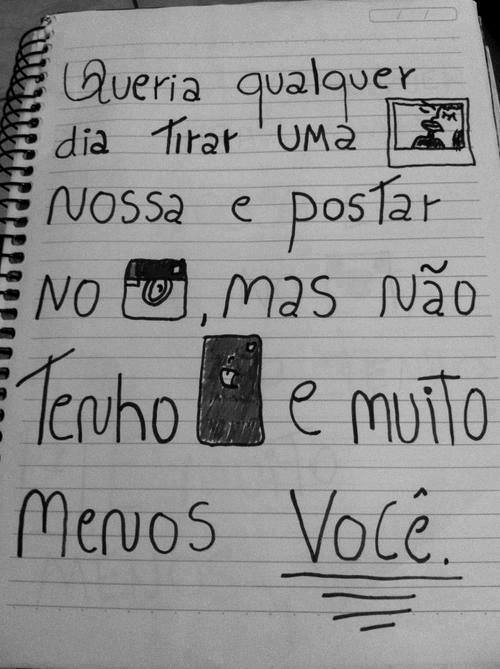 Queria qualquer
dia tirar uma
nossa e postar
no , mas não
tenho e muito
menos você.